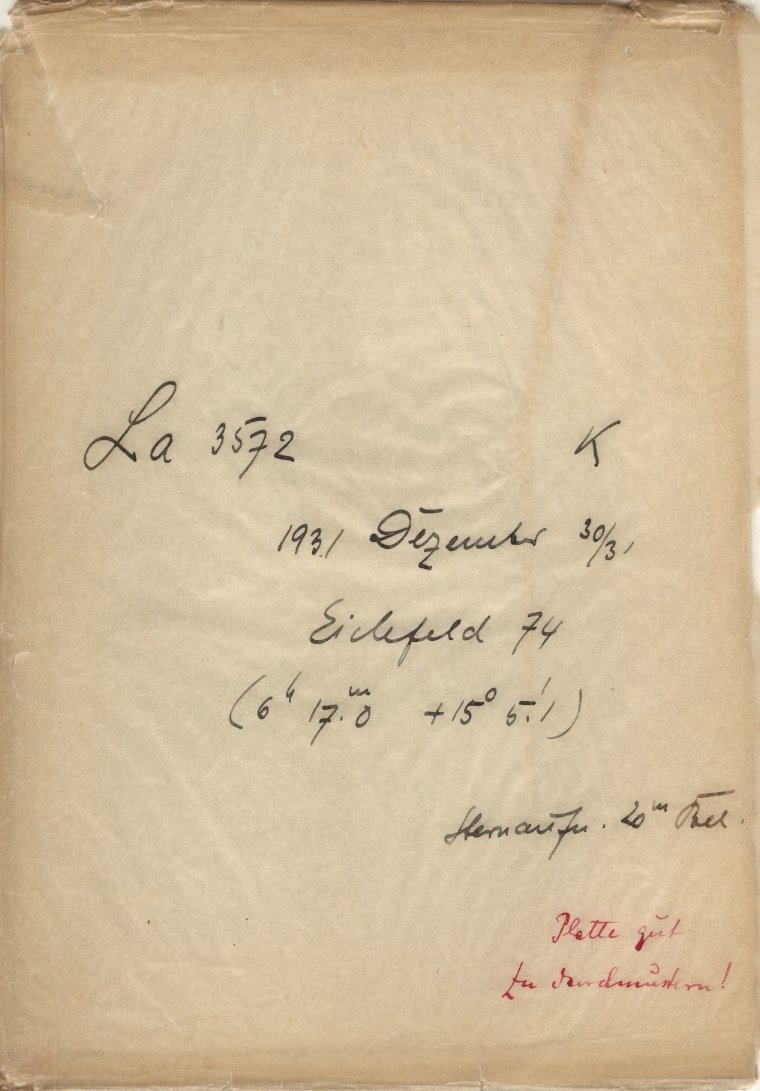 La 3572 K
1931 Dezember 30/31
Eichfeld 74
(6ʰ 17.ᵐ0 +15° 5.'1)
Sternaufn. 20ᵐ Bel.
Platte gut
zu durchmustern!